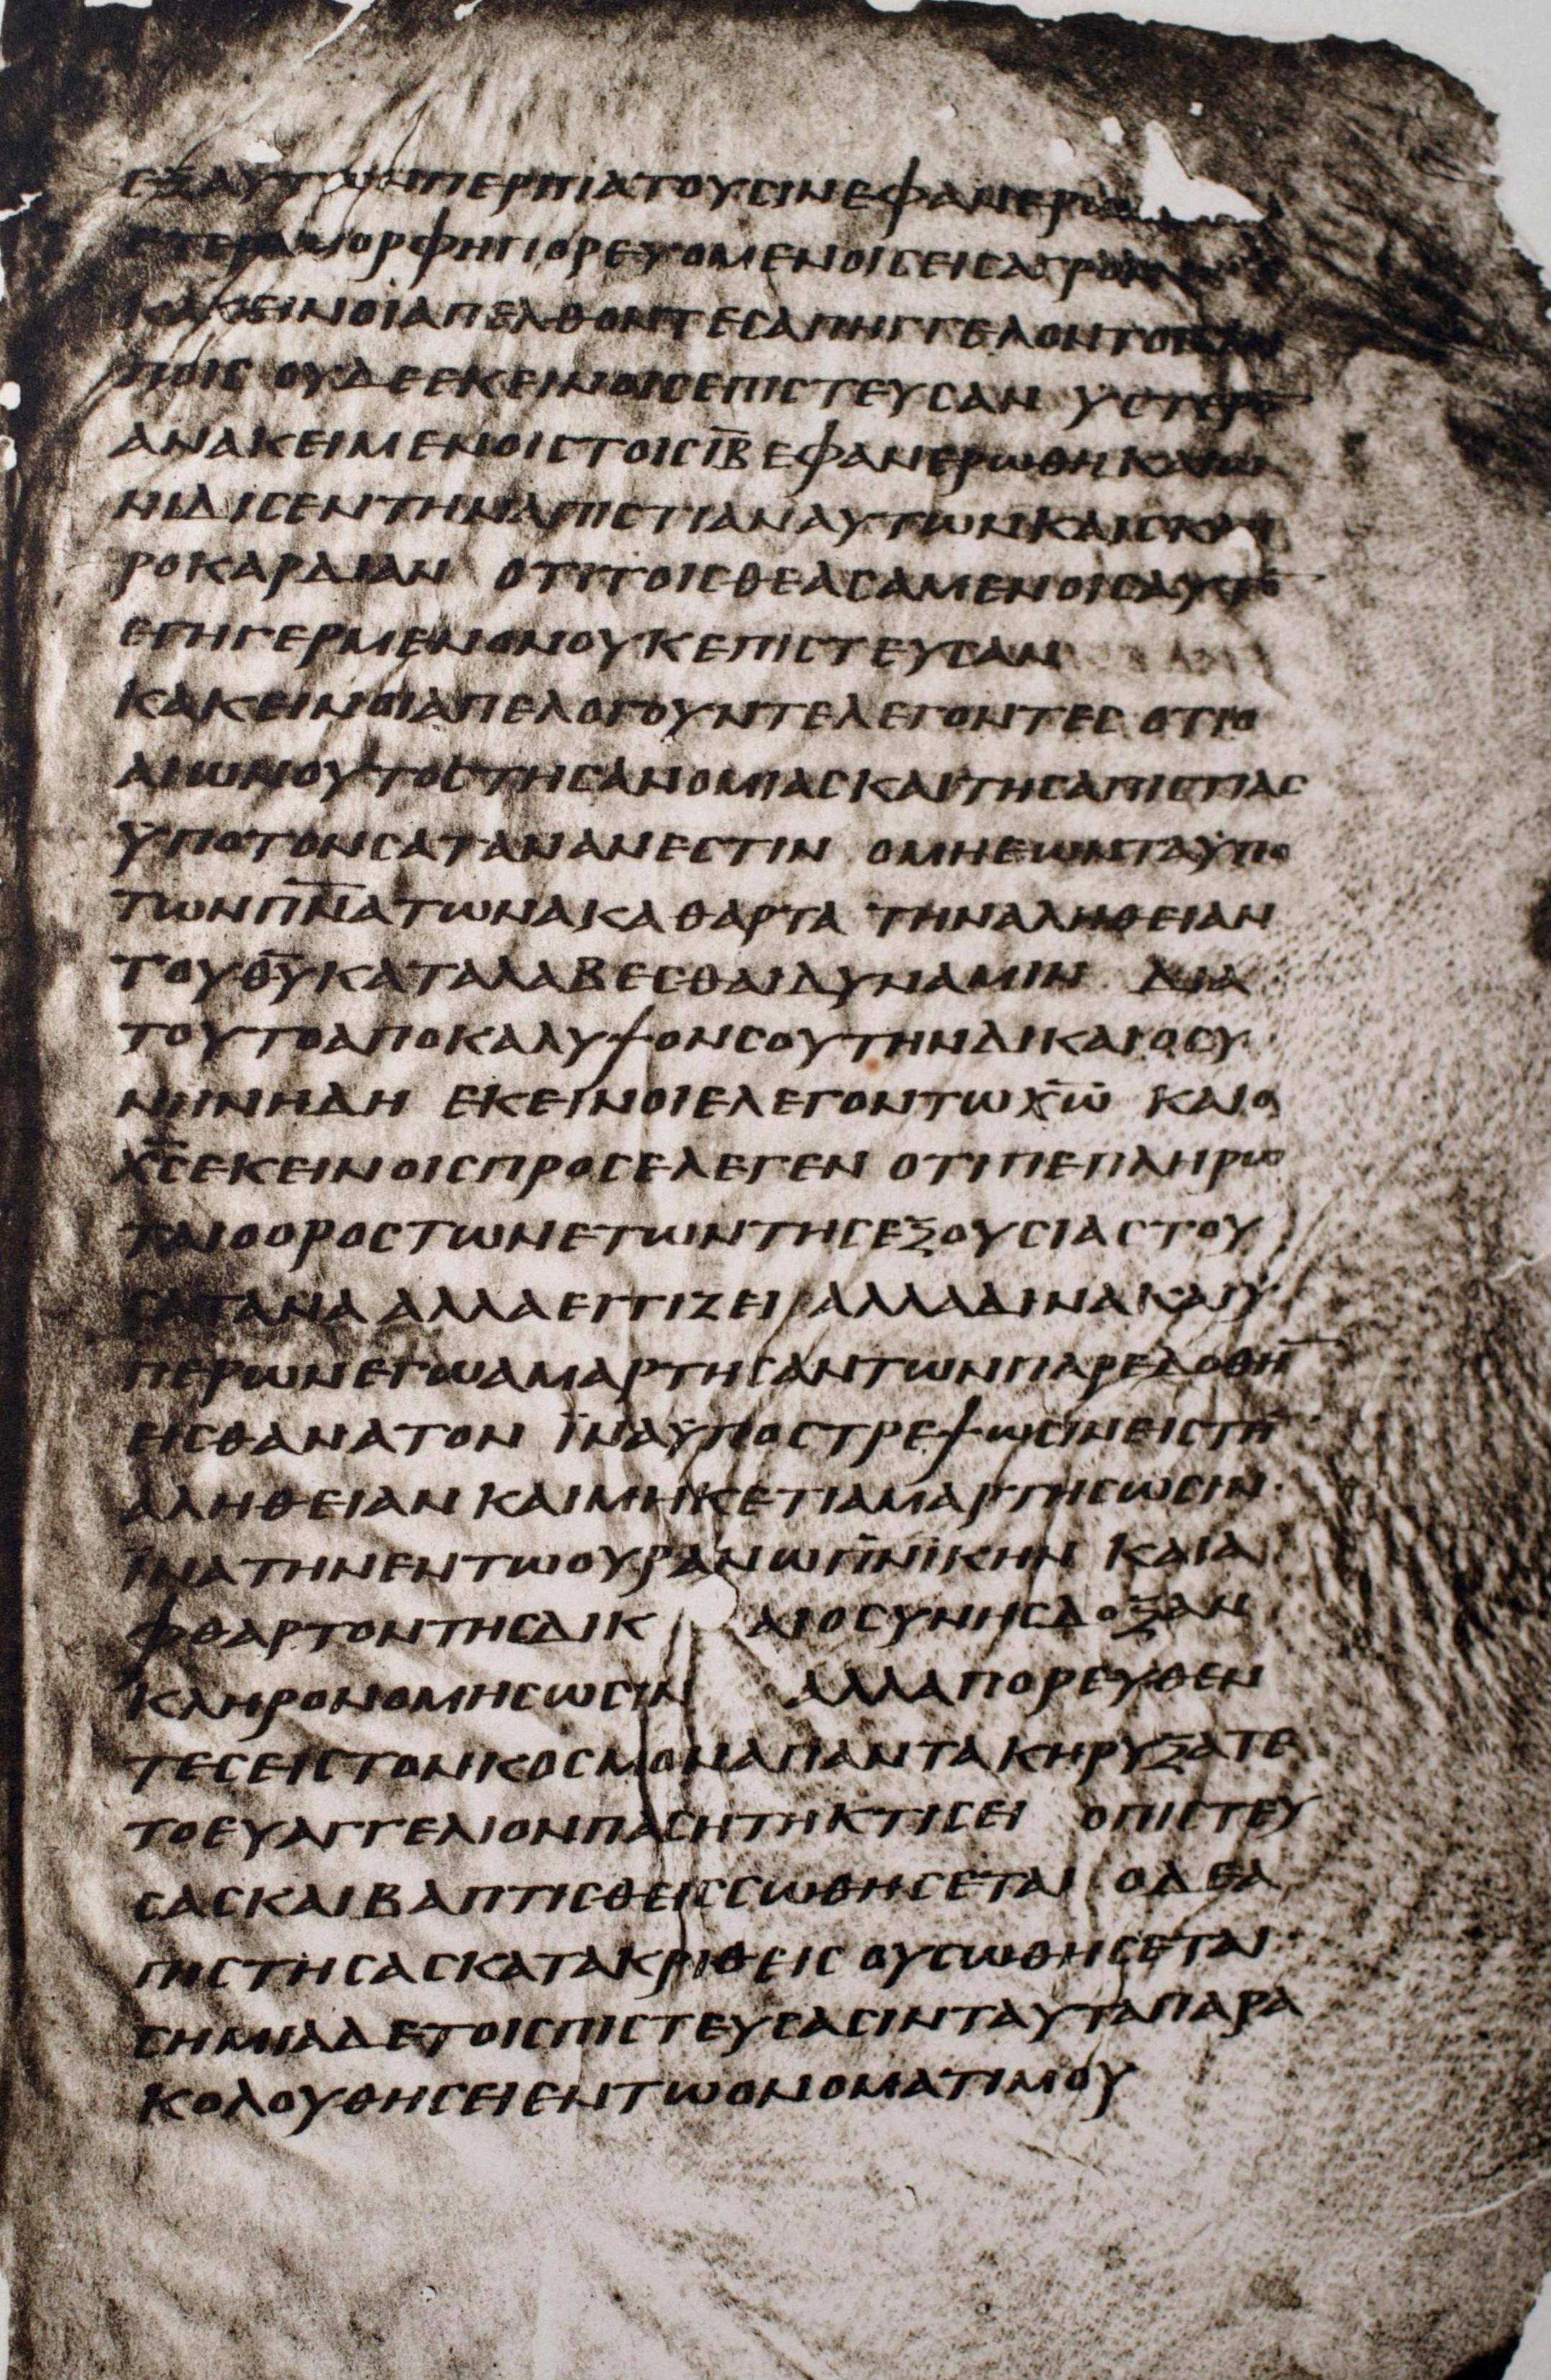 ΕΞΑΥΤΩΝΠΕΡΙΠΑΤΟΥϹΙΝΕΦΑΝΕΡΩ
ΕΤΕΡΑΜΟΡΦΗΠΟΡΕΥΟΜΕΝΟΙϹΕΙϹΑΓΡΟΝ
ΚΑΚΕΙΝΟΙΑΠΕΛΘΟΝΤΕϹΑΠΗΓΓΕΛΟΝΤΟΙϹΛΟΙ
ΠΟΙϹ ΟΥΔΕΕΚΕΙΝΟΙϹΕΠΙϹΤΕΥϹΑΝ ΥϹΤΕΡΟ̅
ΑΝΑΚΕΙΜΕΝΟΙϹΤΟΙϹΙ̅Β̅ΕΦΑΝΕΡΩΘΗΚΑΙΩ
ΝΙΔΙϹΕΝΤΗΝΑΠΙϹΤΙΑΝΑΥΤΩΝΚΑΙϹΚΛΗ
ΡΟΚΑΡΔΙΑΝ ΟΤΙΤΟΙϹΘΕΑϹΑΜΕΝΟΙϹΑΥΤΟ̅
ΕΓΗΓΕΡΜΕΝΟΝΟΥΚΕΠΙϹΤΕΥϹΑΝ
ΚΑΚΕΙΝΟΙΑΠΕΛΟΓΟΥΝΤΕΛΕΓΟΝΤΕϹ ΟΤΙΟ
ΑΙΩΝΟΥΤΟϹΤΗϹΑΝΟΜΙΑϹΚΑΙΤΗϹΑΠΙϹΤΙΑϹ
ΫΠΟΤΟΝϹΑΤΑΝΑΝΕϹΤΙΝ ΟΜΗΕΩΝΤΑΫΠΟ
ΤΩΝΠ̅Ν̅Α̅ΤΩΝΑΚΑΘΑΡΤΑ ΤΗΝΑΛΗΘΕΙΑΝ
ΤΟΥΘ̅Υ̅ΚΑΤΑΛΑΒΕϹΘΑΙΔΥΝΑΜΙΝ ΔΙΑ
ΤΟΥΤΟΑΠΟΚΑΛΥΨΟΝϹΟΥΤΗΝΔΙΚΑΙΟϹΥ
ΝΗΝΗΔΗ ΕΚΕΙΝΟΙΕΛΕΓΟΝΤΩΧ̅Ω̅ ΚΑΙΟ
Χ̅Ϲ̅ΕΚΕΙΝΟΙϹΠΡΟϹΕΛΕΓΕΝ ΟΤΙΠΕΠΛΗΡΩ
ΤΑΙΟΟΡΟϹΤΩΝΕΤΩΝΤΗϹΕΞΟΥϹΙΑϹΤΟΥ
ϹΑΤΑΝΑ ΑΛΛΑΕΓΓΙΖΕΙ ΑΛΛΑΔΙΝΑΚΑΙΫ
ΠΕΡΩΝΕΓΩΑΜΑΡΤΗϹΑΝΤΩΝΠΑΡΕΔΟΘΗ̅
ΕΙϹΘΑΝΑΤΟΝ ΪΝΑΫΠΟϹΤΡΕΨΩϹΙΝΕΙϹΤΗ̅
ΑΛΗΘΕΙΑΝΚΑΙΜΗΚΕΤΙΑΜΑΡΤΗϹΩϹΙΝ·
ΪΝΑΤΗΝΕΝΤΩΟΥΡΑΝΩΠ̅Ν̅ΙΚΗΝ ΚΑΙΑ
ΦΘΑΡΤΟΝΤΗϹΔΙΚ ΑΙΟϹΥΝΗϹΔΟΞΑΝ
ΚΛΗΡΟΝΟΜΗϹΩϹΙΝ ΑΛΛΑΠΟΡΕΥΘΕΝ
ΤΕϹΕΙϹΤΟΝΚΟϹΜΟΝΑΠΑΝΤΑΚΗΡΥΞΑΤΕ
ΤΟΕΥΑΓΓΕΛΙΟΝΠΑϹΗΤΗΚΤΙϹΕΙ ΟΠΙϹΤΕΥ
ϹΑϹΚΑΙΒΑΠΤΙϹΘΕΙϹϹΩΘΗϹΕΤΑΙ ΟΔΕΑ
ΠΙϹΤΗϹΑϹΚΑΤΑΚΡΙΘΕΙϹ ΟΥϹΩΘΗϹΕΤΑΙ
ϹΗΜΙΑΔΕΤΟΙϹΠΙϹΤΕΥϹΑϹΙΝΤΑΥΤΑΠΑΡΑ
ΚΟΛΟΥΘΗϹΕΙΕΝΤΩΟΝΟΜΑΤΙΜΟΥ